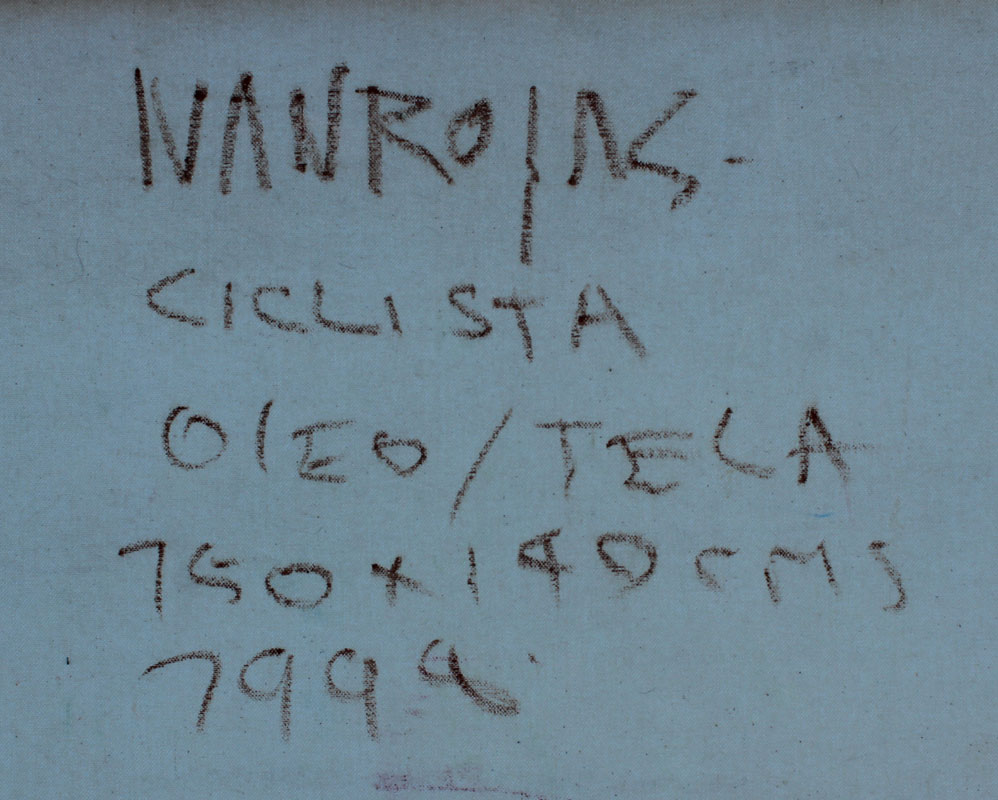 IVAN ROJAS.
CICLISTA
OlEO/TELA
150 x 140 cms
1999.